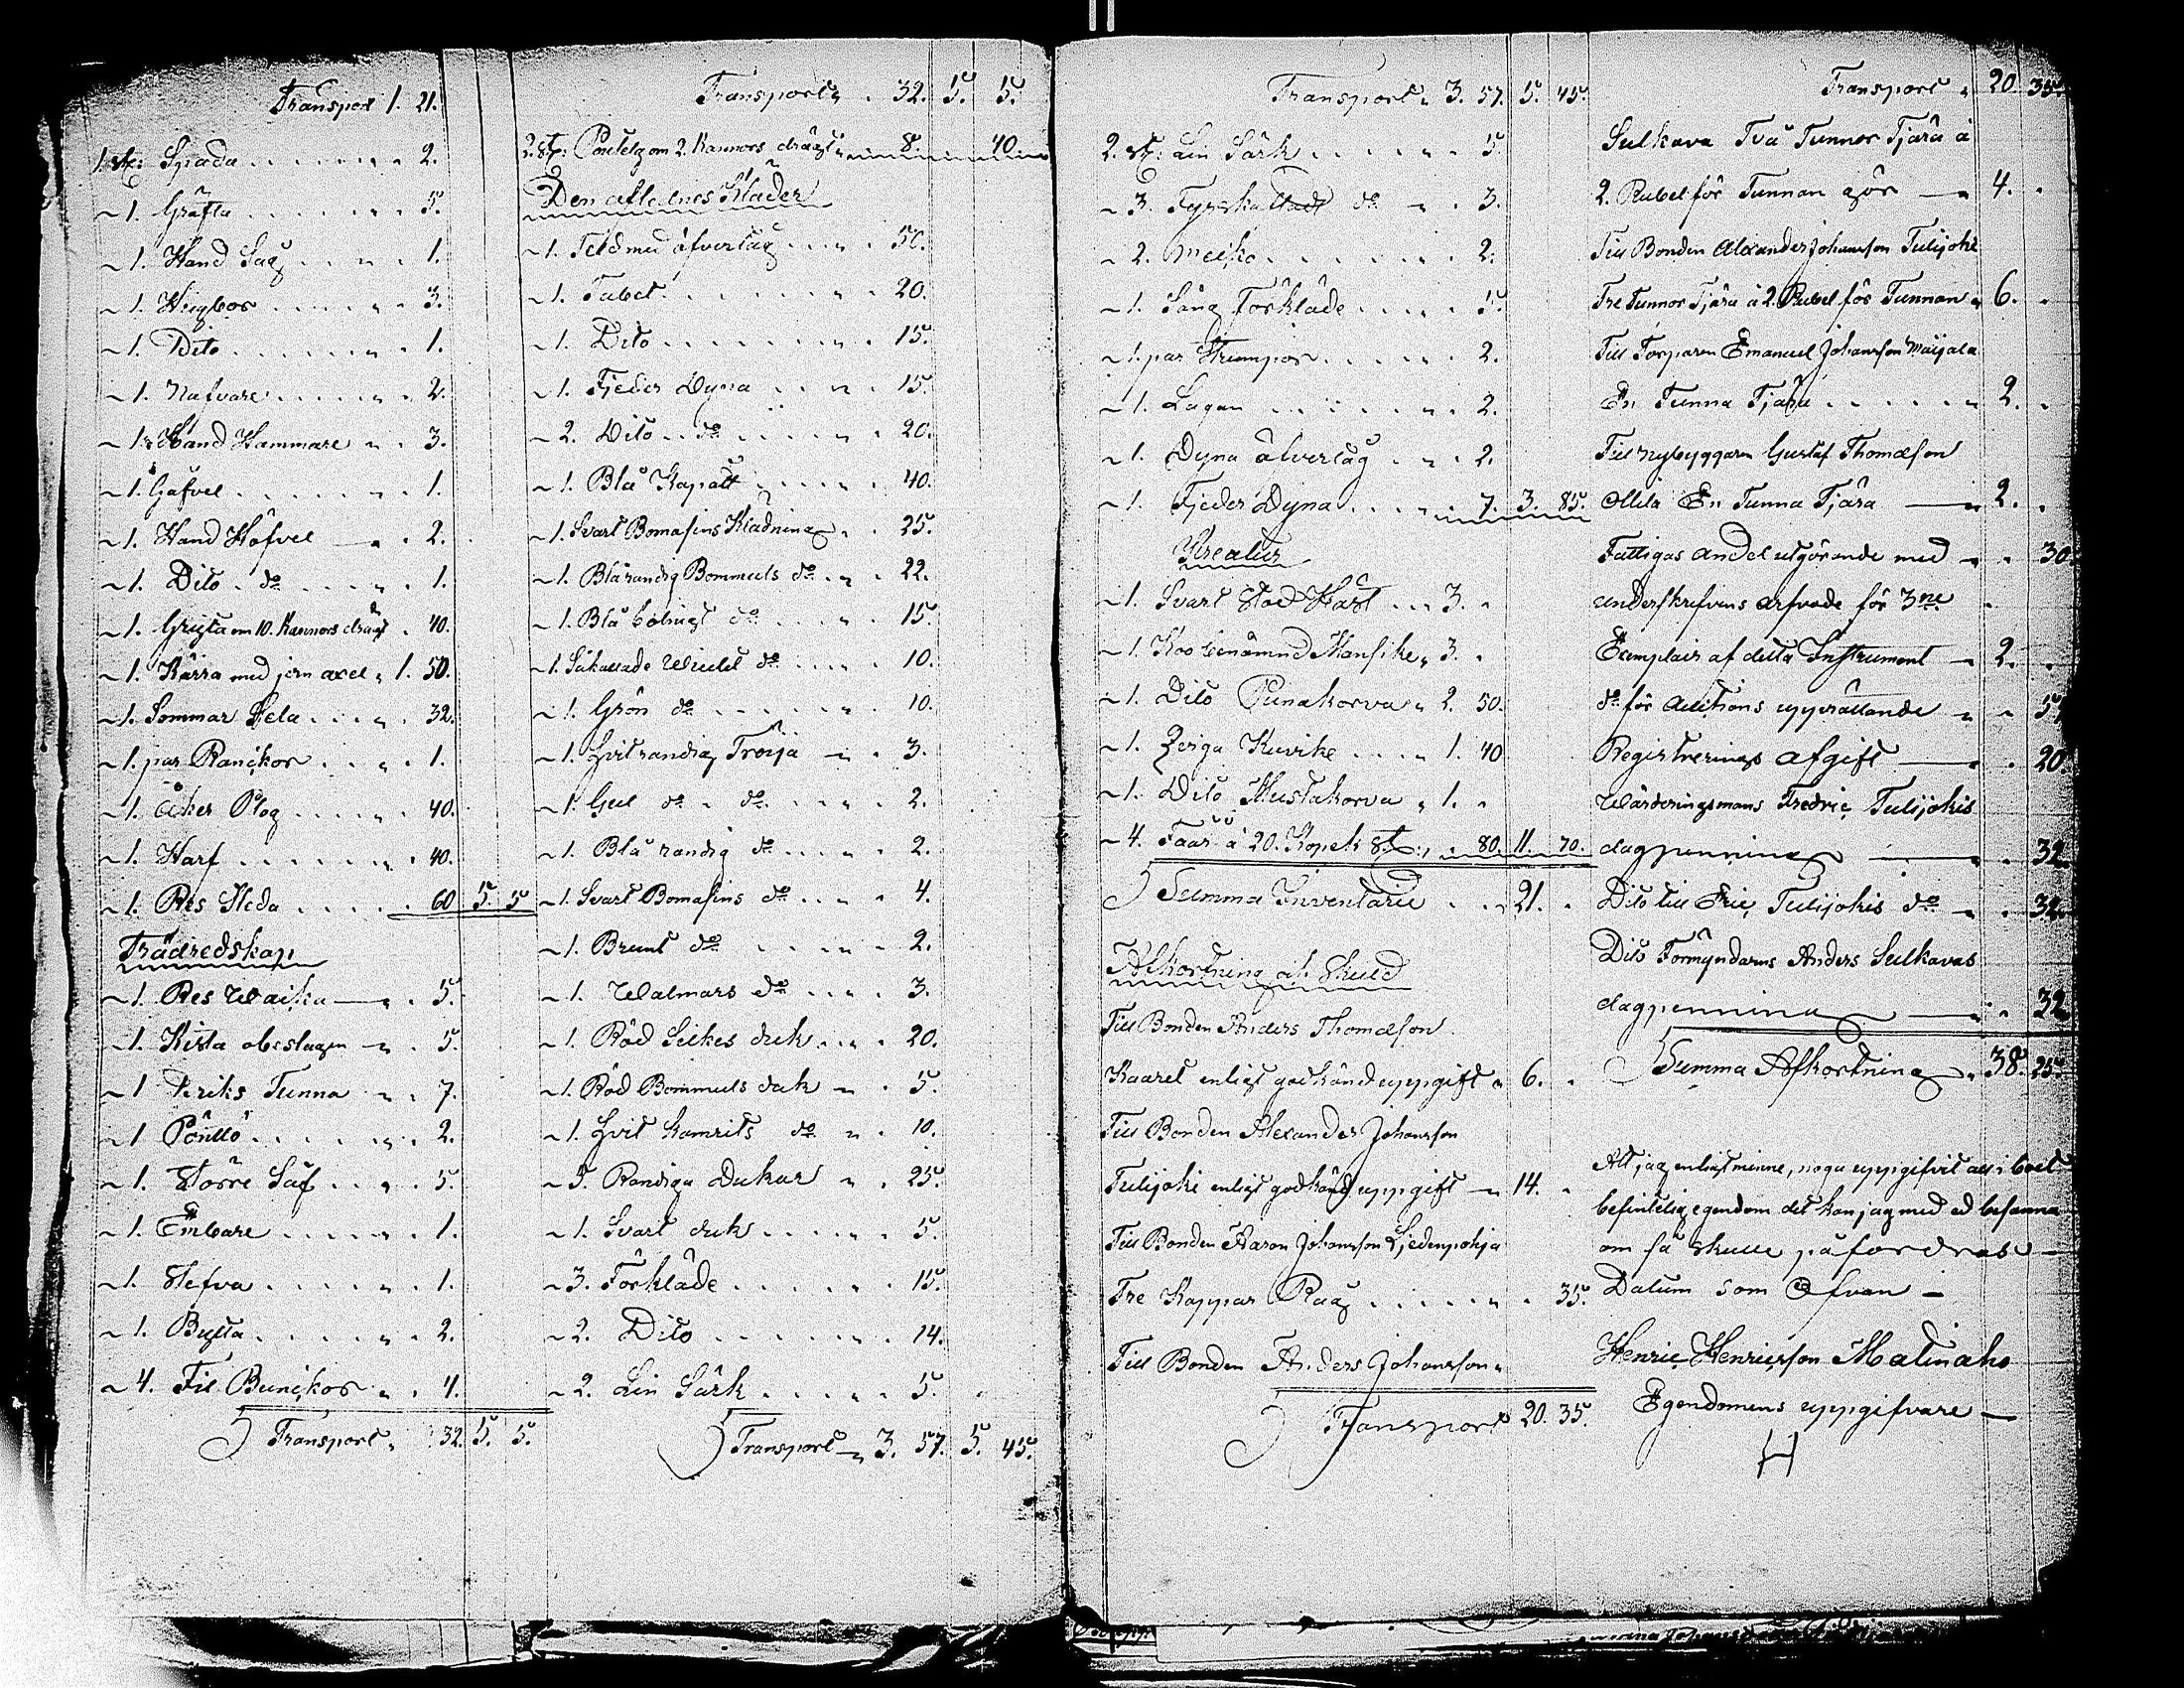 Transport 1. 21.
1. st: Spada 2.
1. Gräfta 5.
1. Hand Såg 1.
1. Hugbor 3.
1. Dito 1.
1. Nafvare 2.
1. Hand Hammare 3.
1. Gafvel 1.
1. Hand Höfvel 2.
1. Dito do 1.
1. Gryta om 10. Kannors drägt 40.
1. Kärra med jern axel 1. 50.
1. Sommar Sela 32.
1. par Ranckor 1.
1. Åker Plog 40.
1. Harf 40.
1. Res Sleda 60 5. 5
Trädredskap
1. Res Waska 5.
1. Kista obeslagen 5.
1. Driks Tunna 7.
1 Pönttö 2.
1. Större Såf 5.
1. Embare 1.
1. Stefva 1.
1. Bytta 2.
4. Fil Bunckor 4.
Transport 32. 5. 5.
Transport 32. 5. 5.
2. st: Poutelg om 2. Kannors drägt 8. 40.
Den aflednes Kläder
1. Feld med öfvertåg 50.
1. Tabet 20.
1. Dito 15.
1. Fjeder Dyna 15.
2. Dito do 20.
1. Blå Kapott 40.
1. Svart Bomasins Klädning 25.
1. Blårandig Bommuls do 22.
1. Blå do 15.
1. Såkallade do 10.
1. Grön do 10.
1. Hvitrandig Tröija 3.
1. Gul do do 2.
1. Blå randig do 2.
1. Svart Bomasins do 4.
1. Brunt do 2.
1. Walmars do 3.
1. Röd Seikes duk 20.
1. Röd Bommuls duk 5.
1. Hvit Kamrits do 10.
5. Randiga Dukar 25.
1. Svart duk 5.
3. Förkläde 15.
2. Dito 14.
2. Lin Särk 5.
Transport 3. 57. 5. 45.
Transport 3. 57. 5. 45.
2. st: Lin Särk 5.
3. Fyrskattade do 3.
2. 2.
1. Säng Förkläde 5.
1. par Strumpor 2.
1. Lagan 2.
1. Dyna ålvertåg 2.
1. Fjeder Dyna 7. 3. 85.
Kreatur
1. Svart Stod Häst 3.
1. Koo benämnd Mansike 3.
1. Dito Punakorva 2. 50.
1. Qviga Kuvike 1. 40
1. Dito Mustakorva 1.
4. Fåår à 20. Kopek St: 80. 11. 70.
Summa Inventarie 21.
Afkortning och Skuld
Till Bonden Anders Thomasson
Kaaret enligt godkänd uppgift 6.
Till Bonden Alexander Johansson
Tulijoki enligt godkänd uppgift 14.
Till Bonden Aaron Johansson Hjedenpohja
Tre Kappar Råg 35.
Till Bonden Anders Johansson
Transport 20. 35.
Transport 20. 35.
Sulkava Två Tunnor Tjära à
2. Rubel för Tunnan gör 4.
Till Bonden Alexander Johansson Tulijoki
Tre Tunnor Tjära à 2. Rubel för Tunnan 6.
Till Torparen Emanuel Johansson Maijala
En Tunna Tjära 2.
Till nybyggaren Gustaf Thomasson
Ollila En Tunna Tjära 2.
Fattigas andel utgörande med 30.
underskrifvens arfvode för 3ne
Exemplair af detta Instrument 2.
do för auctions upprättande 57
Registrerings afgift 20.
Wärderingsmans Fredric Tulijokis
dagpenning 32
Dito till Eric Tulijokis do 32
Dito Förmyndarens Anders Sulkavas
dagpenning 32
Summa Afkortning 38. 25.
Att jag enligt minne, noga uppgifvit all i boet
befintelig egendom det kan jag med ed besanna
om så skulle påfordras
Datum som Ofvan
Henric Henricsson Matinaho
Egendomens uppgifvare